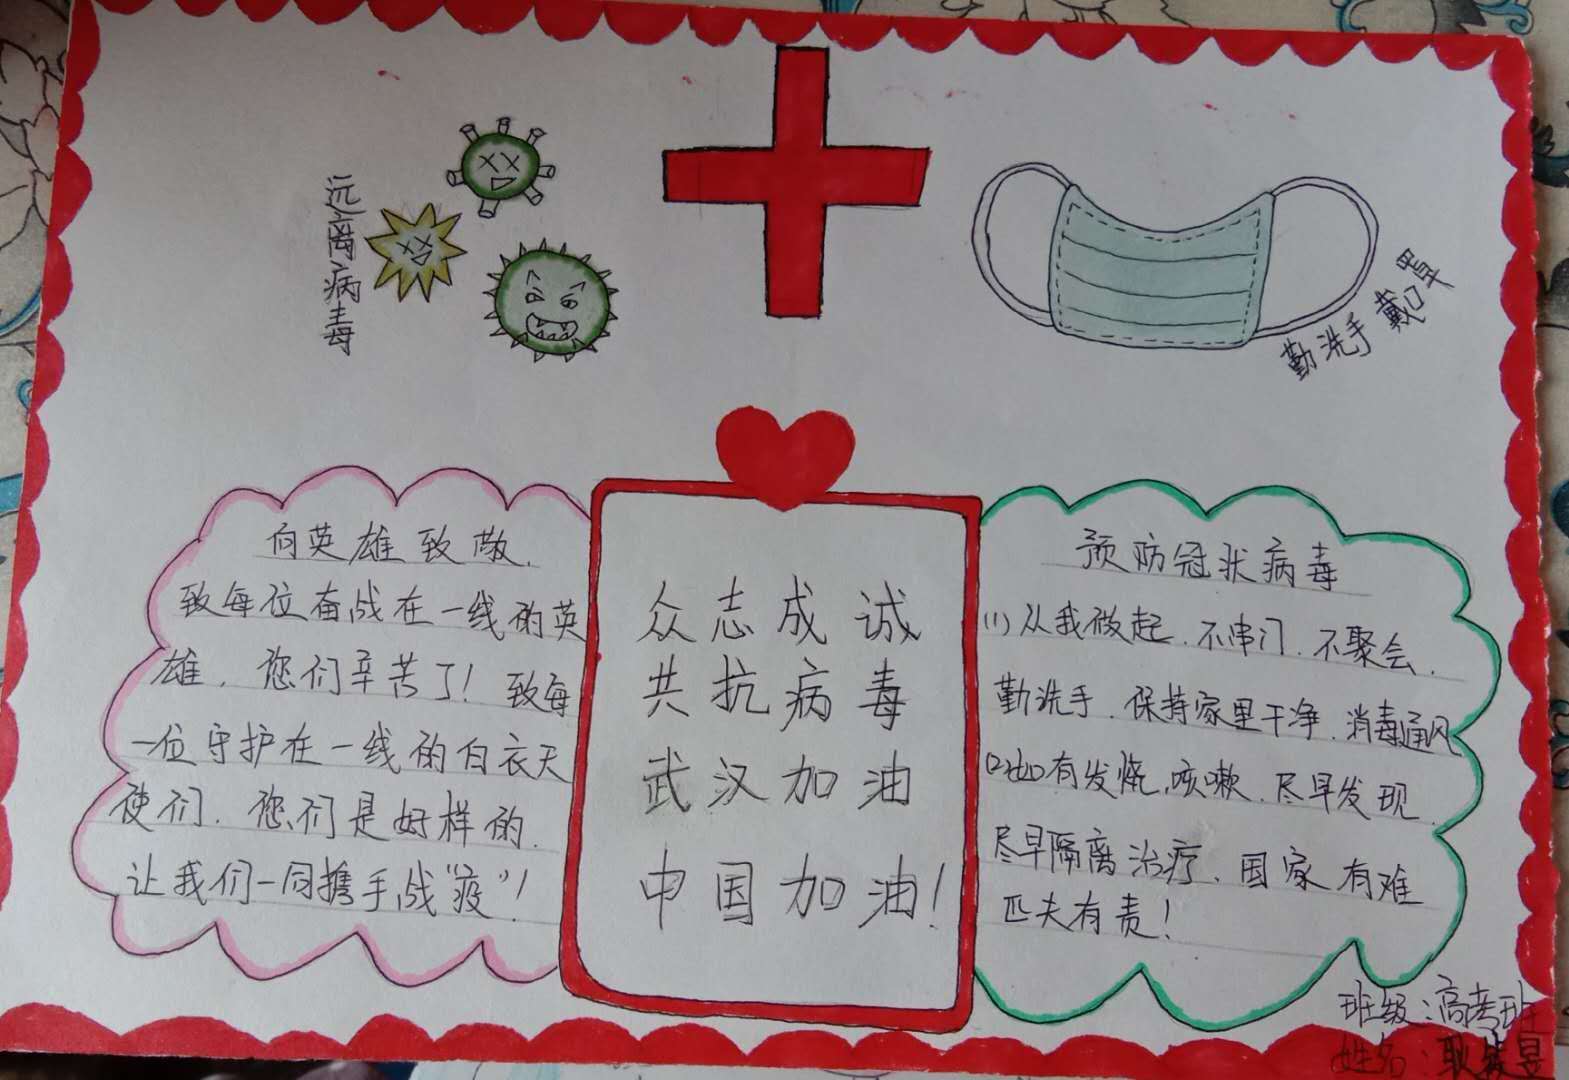 远离病毒
勤洗手 戴口罩
向英雄致敬.
致每位奋战在一线的英
雄，您们辛苦了！致每
一位守护在一线的白衣天
使们，您们是好样的.
让我们一同携手战“疫”！
众志成诚
共抗病毒
武汉加油
中国加油！
预防冠状病毒
(1)从我做起.不串门.不聚会.
勤洗手.保持家里干净.消毒通风
有发烧.咳嗽.尽早发现.
尽早隔离治疗.国家有难
匹夫有责！
班级：高考班
姓名：耿